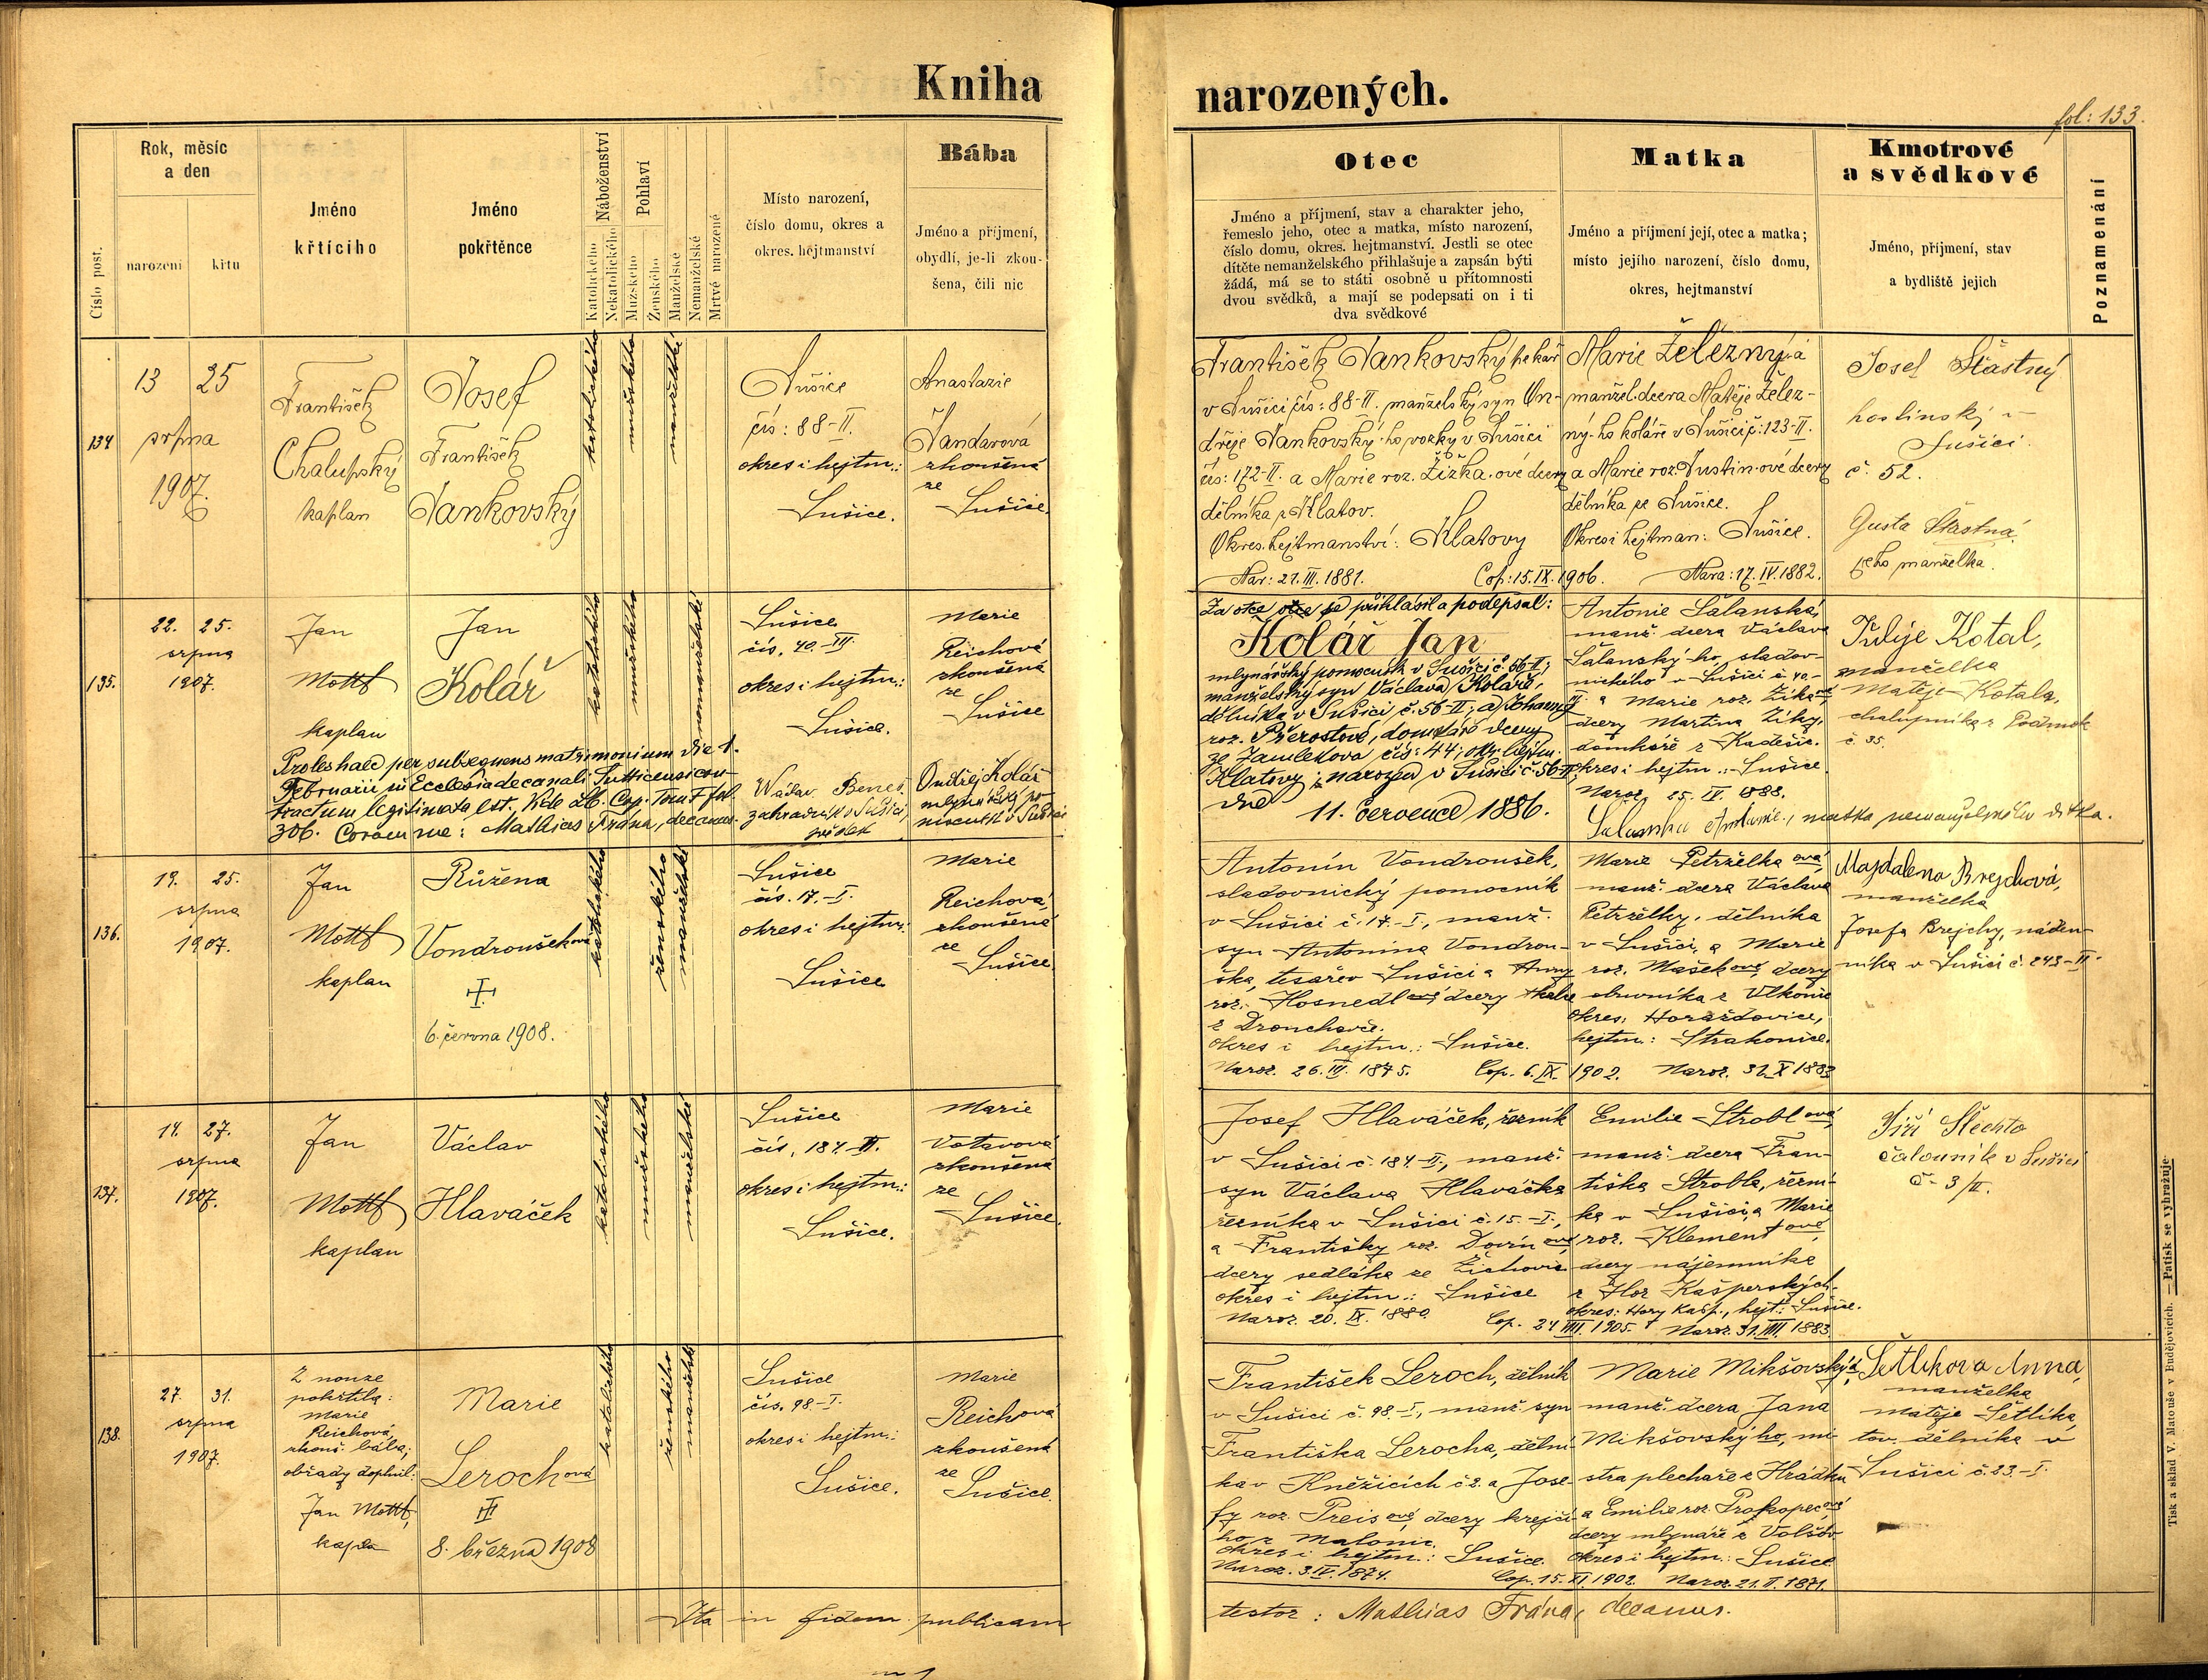 Kniha narozených.
fol: 133.
Číslo post.
Rok, měsíc
a den
narození
křtu
Jméno
křtícího
Jméno
pokřtěnce
Náboženství
Katolického
Nekatolického
Pohlaví
Mužského
Ženského
Manželské
Nemanželské
Mrtvě narozené
Místo narození,
číslo domu, okres a
okres. hejtmanství
Bába
Jméno a příjmení,
obydlí, je-li zkou-
šena, čili nic
Otec
Jméno a příjmení, stav a charakter jeho,
řemeslo jeho, otec a matka, místo narození,
číslo domu, okres. hejtmanství. Jestli se otec
dítěte nemanželského přihlašuje a zapsán býti
žádá, má se to státi osobně u přítomnosti
dvou svědků, a mají se podepsati on i ti
dva svědkové
Matka
Jméno a příjmení její, otec a matka;
místo jejího narození, číslo domu,
okres, hejtmanství
Kmotrové
a svědkové
Jméno, příjmení, stav
a bydliště jejich
Poznamenání
134
13 25
srpna
1907.
František
Chalupský
kaplan
Josef
František
Jankovský
katolického
mužského
manželské
Sušice
čís: 88-II.
okres i hejtm.:
Sušice.
Anastazie
Jandarová
zkoušená
ze
Sušice.
František Jankovský pekař
v Sušici čís: 88-II. manželský syn On-
dřeje Jankovský-ho vozky v Sušici
čís: 172-II. a Marie roz. Žižka-ové dcery
dělníka z Klatov.
Okres. hejtmanství: Klatovy
Nar: 21. III. 1881. Cop: 15. IX. 1906.
Marie Železný-á
manžel. dcera Matěje Želez-
ný-ho koláře v Sušici č: 123-II.
a Marie roz. Justin-ové dcery
dělníka ze Sušice.
Okres i hejtman: Sušice.
Nara: 17. IV. 1882.
Josef Šťastný
hostinský v
Sušici
č. 52.
Gusta Šťastná
jeho manželka.
135.
22. 25.
srpna
1907.
Jan
Mottl
kaplan
Jan
Kolář
katolického
mužského
nemanželské
Sušice
čís. 40.-III
okres i hejtm.:
Sušice.
Marie
Reichová
zkoušená
ze
Sušice
Proles haec per subsequens matrimonium die 1.
Februarii in Ecclesia decanali Sutticensi con-
tractum legitimata est. Vide Lib. Cop. Tom F fol.
306. Coram me: Mathias Frána, decanus.
Václav Beneš
zahradník v Sušici,
svědek
Ondřej Kolář
mlynářský po-
mocník v Sušici
Za otce se přihlásil a podepsal:
Kolář Jan
mlynářský pomocník v Sušici č. 56-II;
manželský syn Václava Koláře,
dělníka v Sušici č. 56-II; a Johanny
roz. Přerostové, domkáře dcery
ze Zamlekova čís: 44; okr. hejtm.
Klatovy; narozen v Sušici č. 56-II
dne
11. července 1886.
Antonie Šalanská,
manž. dcera Václava
Šalanský-ho, sladov-
nického v Sušici č. 40-
III. a Marie roz. Žikaové
dcery Martina Žiky,
domkáře z Kadešic.
okres i hejtm.: Sušice
Naroz. 25. IV. 1888.
matka nemanželského dítka.
Julije Kotal,
manželka
Matěje Kotala,
chalupníka z Podmok
č. 35.
136.
19. 25.
srpna
1907.
Jan
Mottl
kaplan
Růžena
Vondroušková
6. června 1908.
katolického
ženského
manželské
Sušice
čís. 17.-I.
okres i hejtm.:
Sušice
Marie
Reichová,
zkoušená
ze
Sušice
Antonín Vondroušek,
sladovnický pomocník
v Sušici č. 17.-I., manž.
syn Antonína Vondrou-
ška, tesaře v Sušici a Anny
roz. Hosnedlové, dcery tkalce
z Dronchovce.
okres i hejtm.: Sušice.
Naroz. 26. III. 1875. Cop. 6. IX. 1902.
Marie Petrželkaová,
manž. dcera Václava
Petrželky, dělníka
v Sušici, a Marie
roz. Mašekové, dcery
obuvníka z Vlkonic
okres: Horažďovice,
hejtm.: Strakonice.
Naroz. 31. X 1883
Majdalena Brejchová,
manželka
Josefa Brejchy, náden-
níka v Sušici č. 243-II.
137.
14. 27.
srpna
1907.
Jan
Mottl
kaplan
Václav
Hlaváček
katolického
mužského
manželské
Sušice
čís. 184.-II.
okres i hejtm.:
Sušice.
Marie
Votavová
zkoušená
ze
Sušice.
Josef Hlaváček, řezník
v Sušici č. 184.-II., manž.
syn Václava Hlaváčka
řezníka v Sušici č. 15.-I.,
a Františky roz. Dovínové,
dcery sedláka ze Žichovic
okres i hejtm.: Sušice
Naroz. 20. IX. 1880. Cop. 24 1905.
Emilie Stroblová,
manž. dcera Fran-
tiška Strobla, řezní-
ka v Sušici, a Marie
roz. Klementové,
dcery nájemníka
z Hor Kašperských.
okres: Hory Kašp., hejt: Sušice.
Naroz. 31. VIII. 1883
Jiří Šlechta
čalouník v Sušici
č. 3/II.
138.
27. 31.
srpna
1907.
Z nouze
pokřtila:
Marie
Reichová,
zkouš. bába;
obřady doplnil:
Jan Mottl,
kaplan
Marie
Lerochová
8. března 1908
katolického
ženského
manželské
Sušice
čís. 98-I.
okres i hejtm.:
Sušice.
Marie
Reichová
zkoušená
ze
Sušice.
František Leroch, dělník
v Sušici č. 98.-I., manž. syn
Františka Lerocha, dělní-
ka v Kněžicích č 2. a Jose-
fy roz. Preisové, dcery krejčí-
ho z Malonic.
okres i hejtm.: Sušice.
Naroz. 3. IV. 1874. Cop. 15. XI 1902.
Marie Mikšovský-á,
manž. dcera Jana
Mikšovský-ho, mi-
stra plechaře z Hrádku
a Emilie roz. Prokopecové
dcery mlynáře z Volšov
okres i hejtm.: Sušice
Naroz. 21. II. 1871.
Šetlíkova Anna,
manželka
Matěje Šetlíka,
tov. dělníka v
Sušici č. 23.-I.
Ita in fidem publicam
testor: Mathias Frána, decanus.
Tisk a sklad V. Matouše v Budějovicích. — Patisk se vyhražuje.